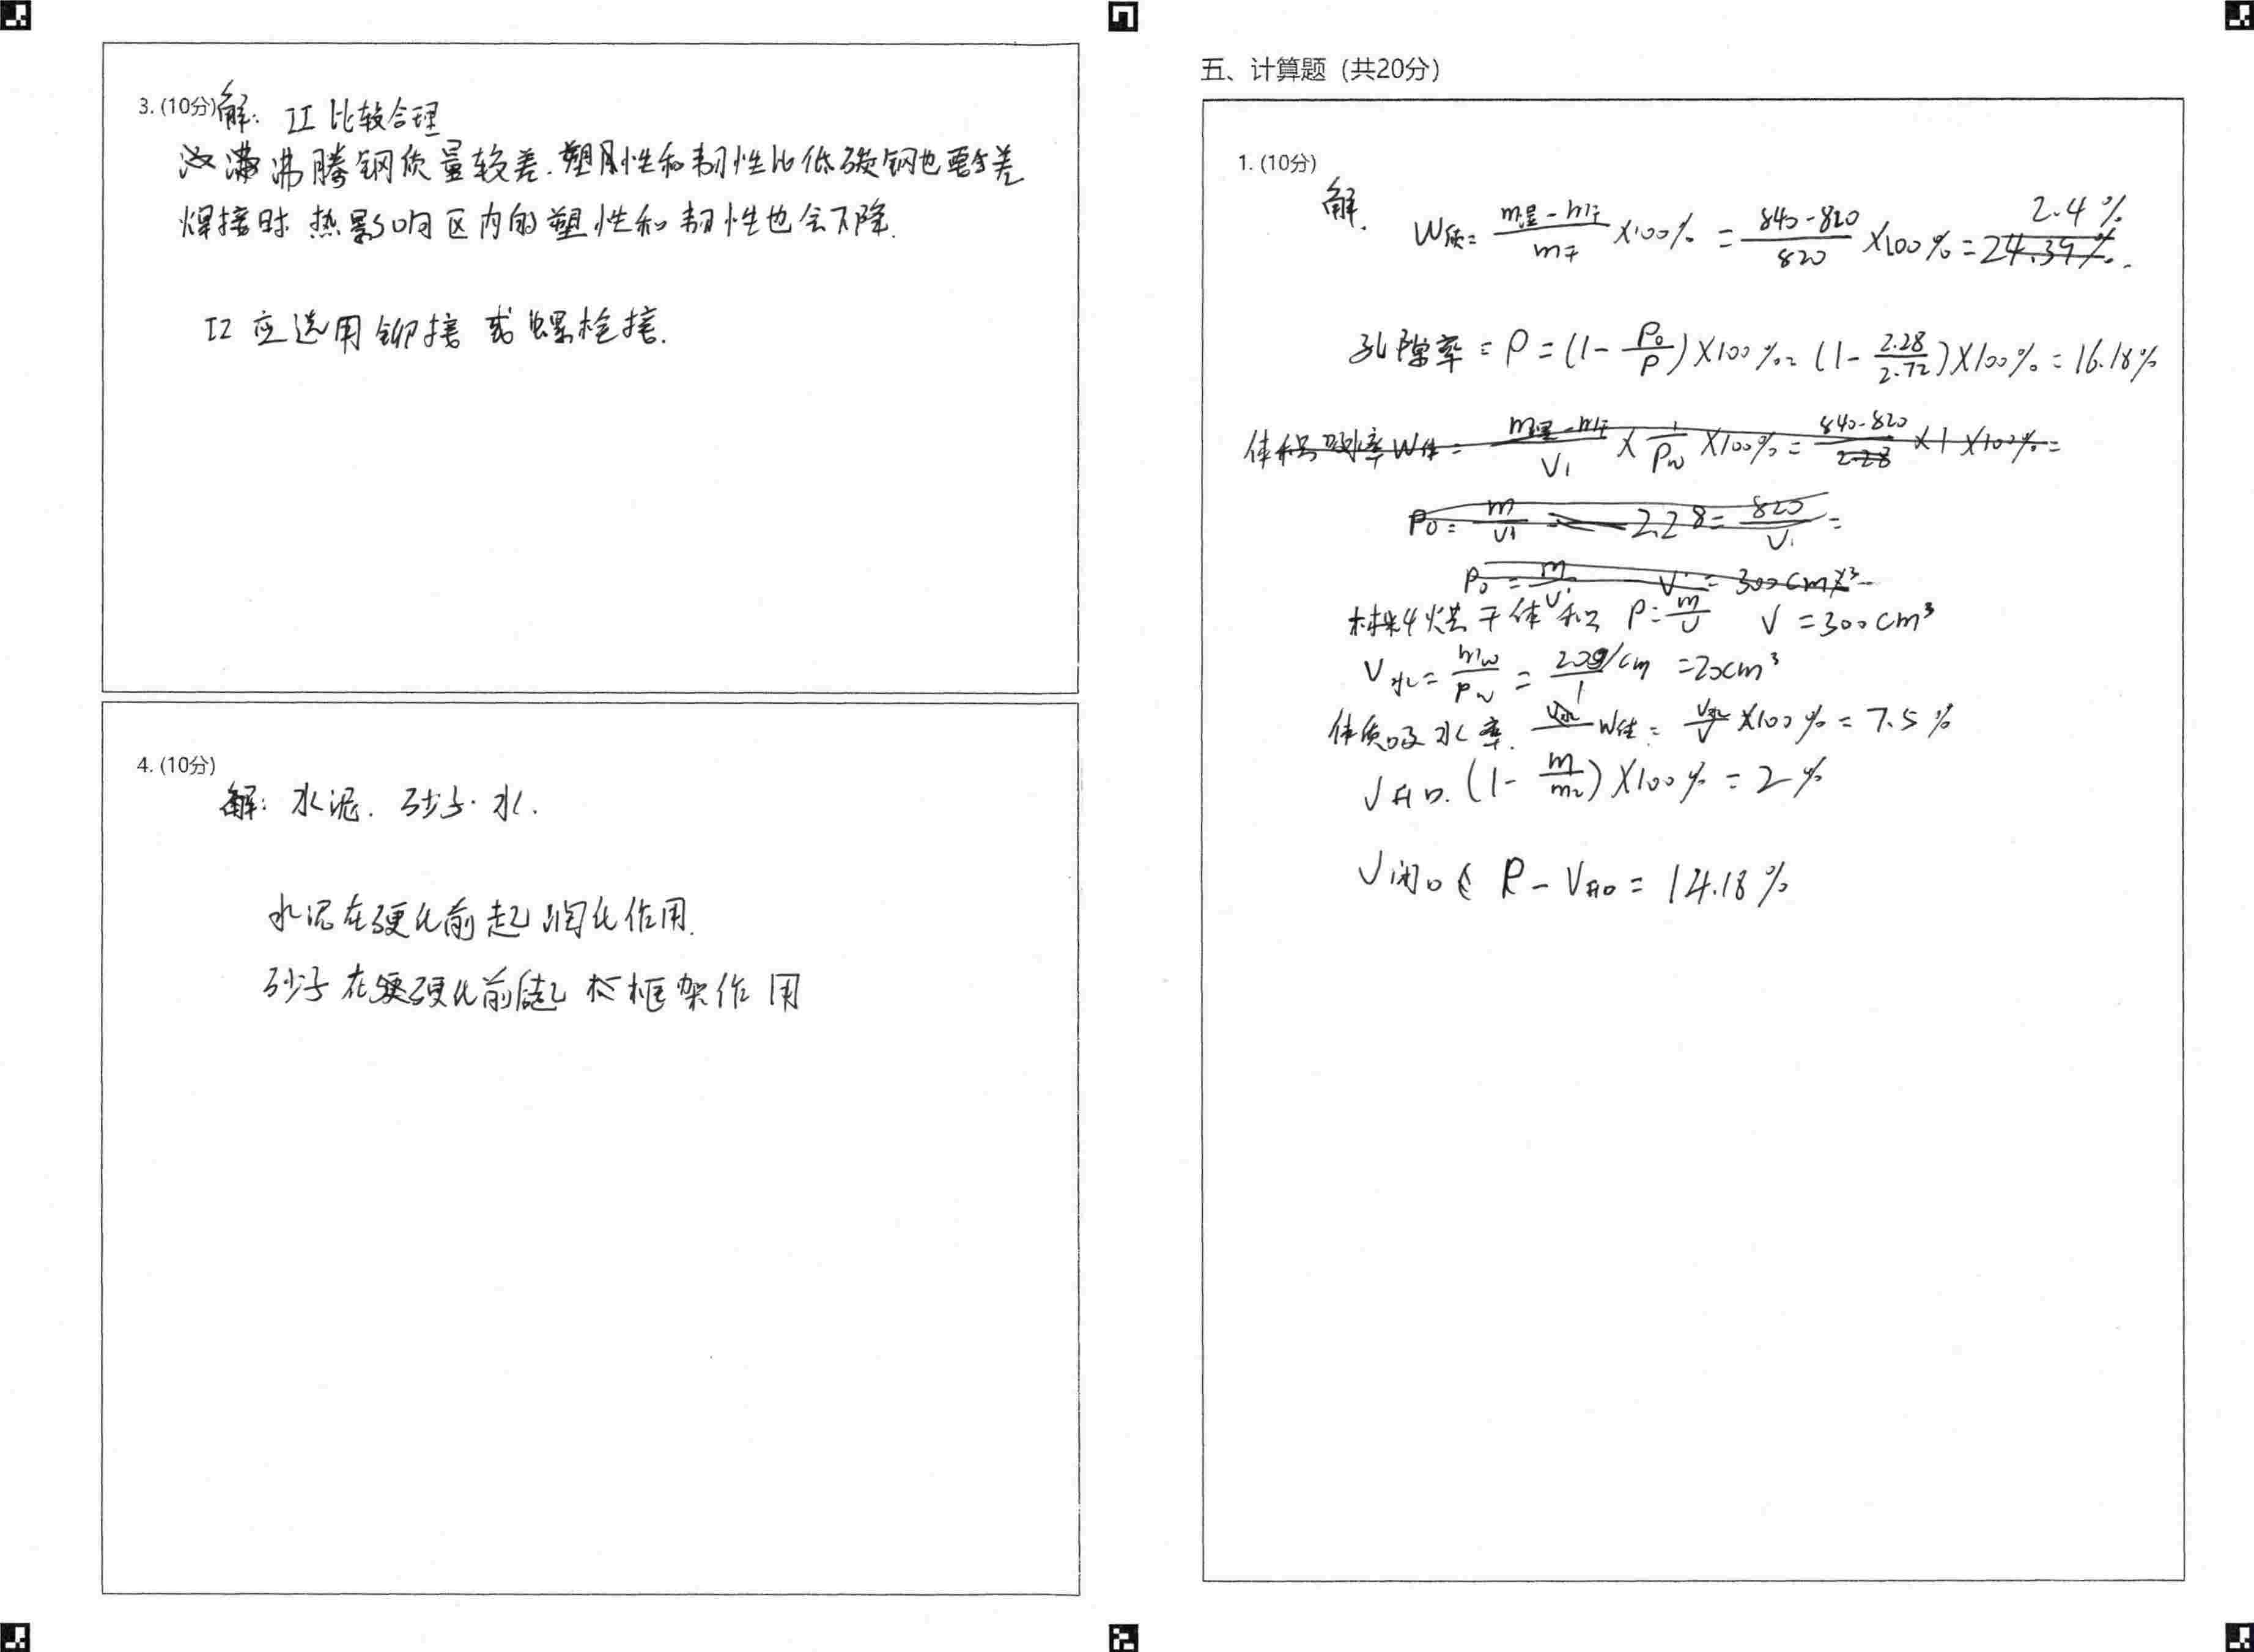 3. (10分) 解: II 比较合理
沸腾钢质量较差. 塑性和韧性比低碳钢也要差
焊接时. 热影响区内的塑性和韧性也会下降.
II 应选用铆接 或 螺栓接.
4. (10分)
解: 水泥. 砂子. 水.
水泥在硬化前起润化作用.
砂子在硬化前起框架作用
五、计算题（共20分）
1. (10分)
解.
W质= (m湿-m干)/m干 ×100% = (840-820)/820 ×100% = 2.4%
孔隙率 = P = (1- ρ0/ρ)×100% = (1- 2.28/2.72)×100% = 16.18%
体积吸水率W体= (m湿-m干)/V1 × 1/ρw ×100% = (840-820)/2.28 ×1×100% =
ρ0 = m/V1 2.28 = 820/V1 =
ρ0 = m/V1 V = 300cm³
材料烘干体积 ρ= m/V V = 300cm³
V水 = mw/ρw = 20g/cm/1 = 20cm³
体质吸水率. W体= V水/V ×100% = 7.5%
V开口. (1- m/m2)×100% = 2%
V闭口 P - V开口 = 14.18%